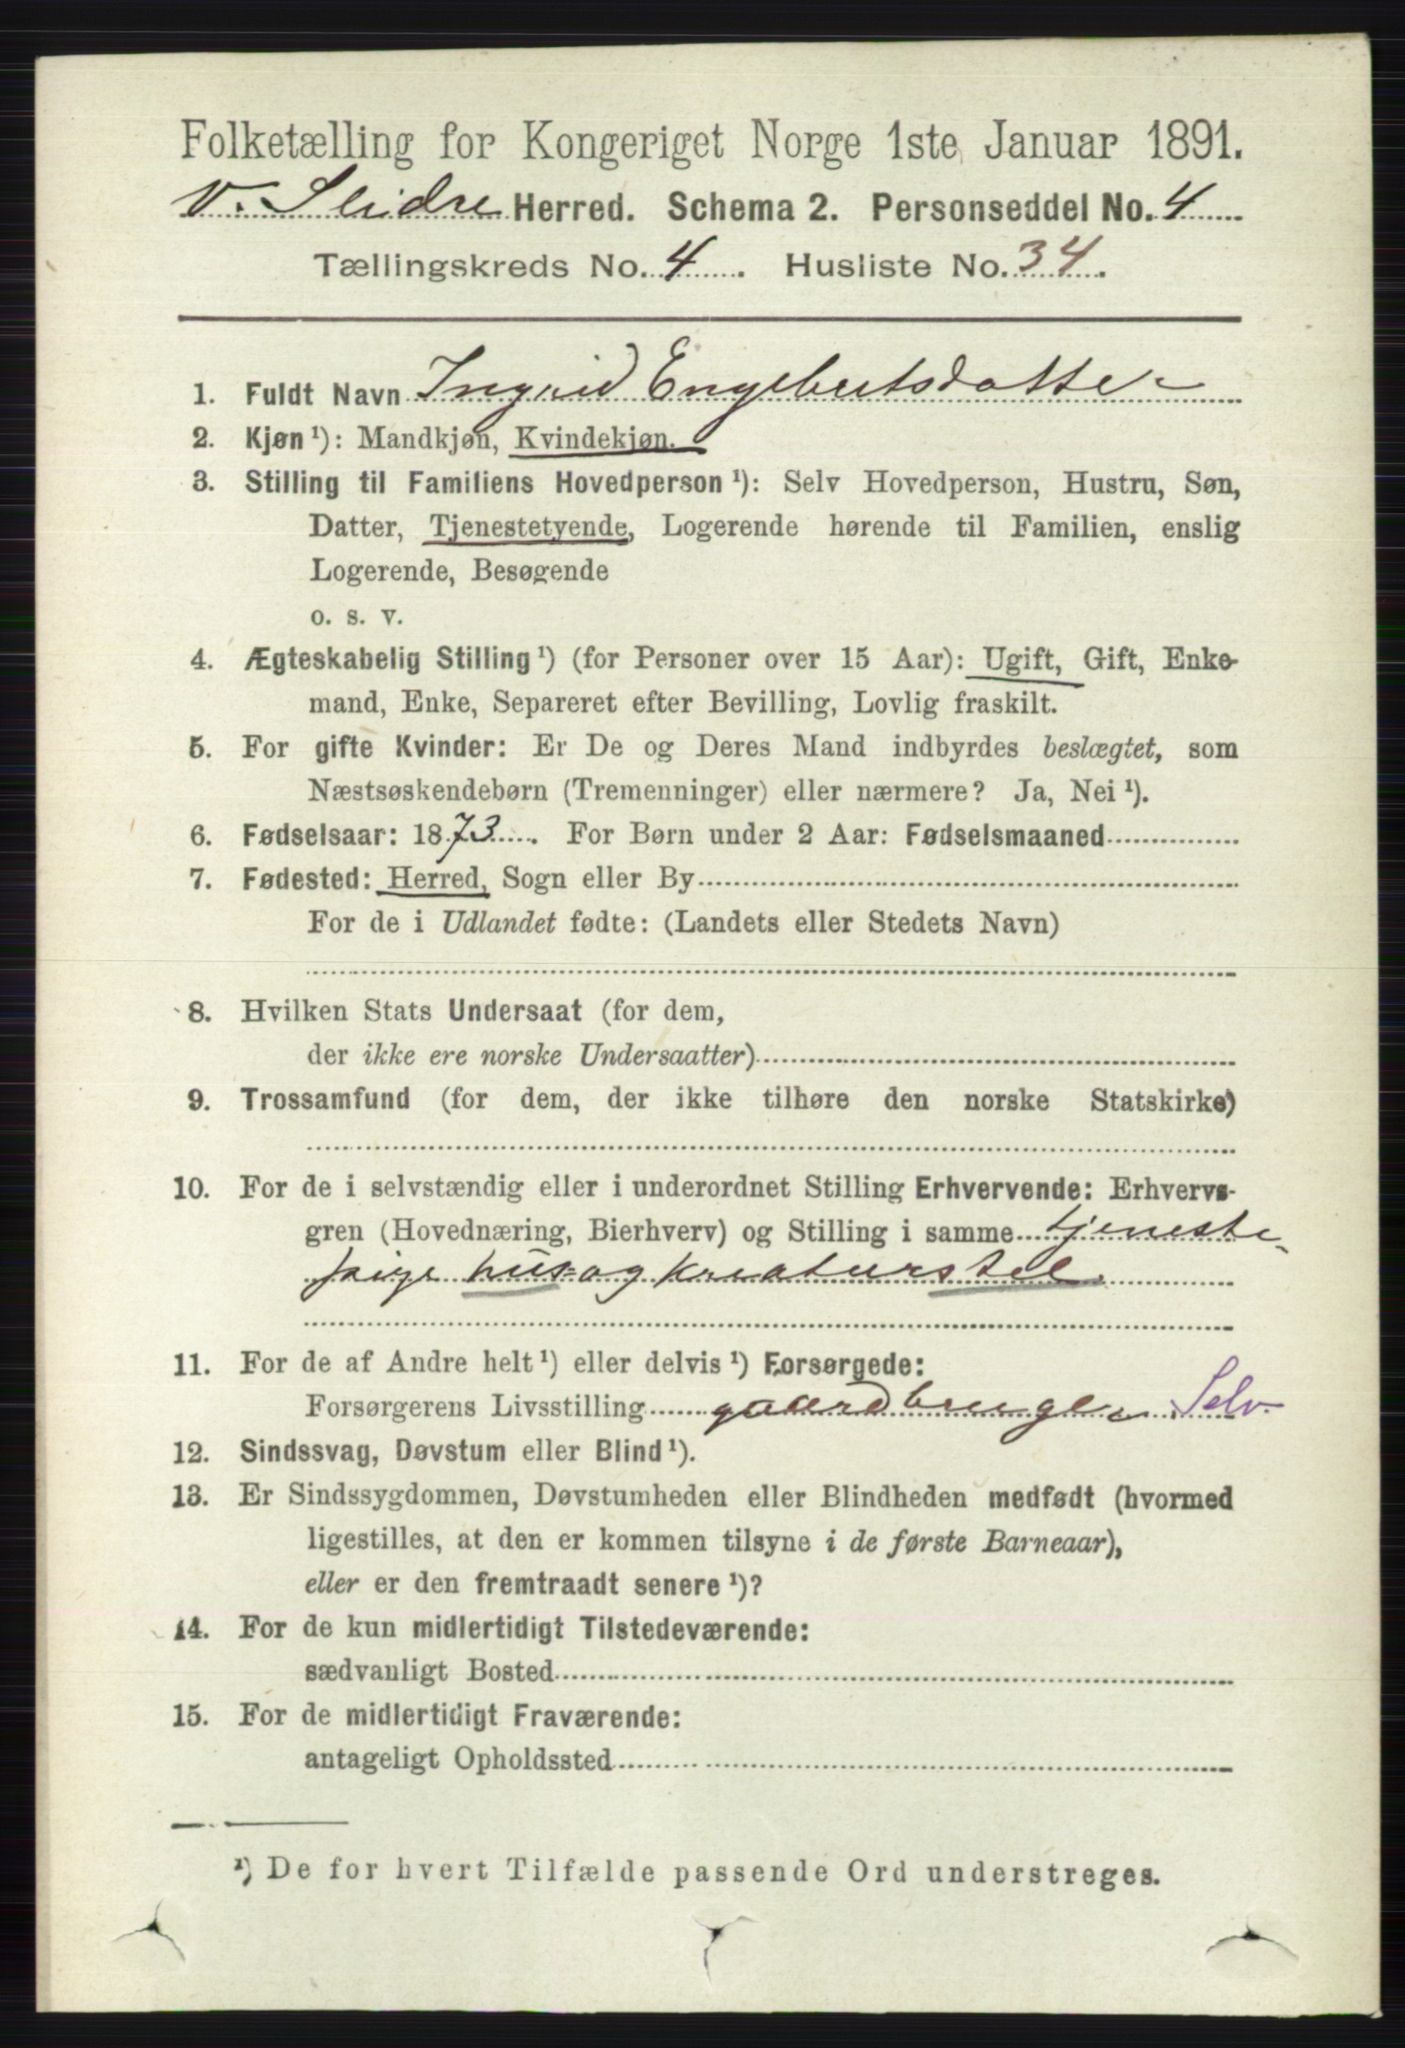 Folketælling for Kongeriget Norge 1ste Januar 1891.
V. Slidre Herred. Schema 2. Personseddel No. 4
Tællingskreds No. 4. Husliste No. 34.
1. Fuldt Navn Ingrid Engebertsdatter
2. Kjøn¹): Mandkjøn, Kvindekjøn.
3. Stilling til Familiens Hovedperson¹): Selv Hovedperson, Hustru, Søn,
Datter, Tjenestetyende, Logerende hørende til Familien, enslig
Logerende, Besøgende
o. s. v.
4. Ægteskabelig Stilling¹) (for Personer over 15 Aar): Ugift, Gift, Enke-
mand, Enke, Separeret efter Bevilling, Lovlig fraskilt.
5. For gifte Kvinder: Er De og Deres Mand indbyrdes beslægtet, som
Næstsøskendebørn (Tremenninger) eller nærmere? Ja, Nei¹).
6. Fødselsaar: 1873. For Børn under 2 Aar: Fødselsmaaned
7. Fødested: Herred, Sogn eller By
For de i Udlandet fødte: (Landets eller Stedets Navn)
8. Hvilken Stats Undersaat (for dem,
der ikke ere norske Undersaatter)
9. Trossamfund (for dem, der ikke tilhøre den norske Statskirke)
10. For de i selvstændig eller i underordnet Stilling Erhvervende: Erhvervs-
gren (Hovednæring, Bierhverv) og Stilling i samme tjeneste-
pige hus- og kreaturstel.
11. For de af Andre helt¹) eller delvis¹) Forsørgede:
Forsørgerens Livsstilling gaardbruger Selv.
12. Sindssvag, Døvstum eller Blind¹).
13. Er Sindssygdommen, Døvstumheden eller Blindheden medfødt (hvormed
ligestilles, at den er kommen tilsyne i de første Barneaar),
eller er den fremtraadt senere¹)?
14. For de kun midlertidigt Tilstedeværende:
sædvanligt Bosted
15. For de midlertidigt Fraværende:
antageligt Opholdssted
¹) De for hvert Tilfælde passende Ord understreges.